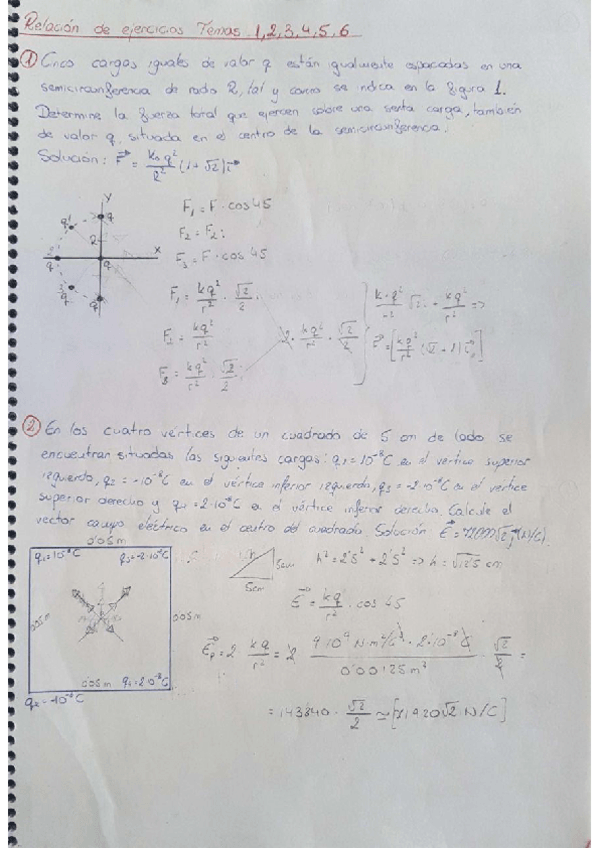 Relación de ejercicios Temas 1,2,3,4,5,6
① Cinco cargas iguales de valor q están igualmente espaciadas en una
semicircunferencia de radio R, tal y como se indica en la figura 1.
Determine la fuerza total que ejercen sobre una sexta carga, también
de valor q, situada en el centro de la semicircunferencia.
Solución: F⃗ = k₀q²/R² (1+√2)i⃗
y
q
q
R
x
q
q
q
q
F₁ = F · cos 45
F₂ = F₂;
F₃ = F · cos 45
F₁ = kq²/r² · √2/2 .
F₂ = kq²/r²
F₃ = kq²/r² · √2/2 ;
2 · kq²/r² · √2/2
k·q²/r² √2 + kq²/r² =>
F⃗ = [kq²/r² (√2 + 1) i⃗]
② En los cuatro vértices de un cuadrado de 5 cm de lado se
encuentran situadas las siguientes cargas: q₁ = 10⁻⁸C en el vertice superior
izquerdo, q₂ = -10⁻⁸C en el vértice inferior izquerdo, q₃ = -2·10⁻⁸C en el vertice
superior derecho y q₄ = 2·10⁻⁸C en el vértice inferior derecho. Calcule el
vector campo eléctrico en el centro del cuadrado. Solución E⃗ = 72000√2 j⃗ (N/C).
0'05m
q₁ = 10⁻⁸C
q₃ = -2·10⁻⁸C
0'05m
0'05m
0'05m
q₄ = 2·10⁻⁸C
q₂ = -10⁻⁸C
h
5cm
5cm
h² = 2'5² + 2'5² => h = √12'5 cm
E⃗ = kq/r² · cos 45
E⃗ₚ = 2 · kq/r² = 2 · 9·10⁹ N·m²/C² · 2·10⁻⁸C / 0'00125 m² · √2/2 =
= 143840 · √2/2 ≃ [71920√2 N/C]